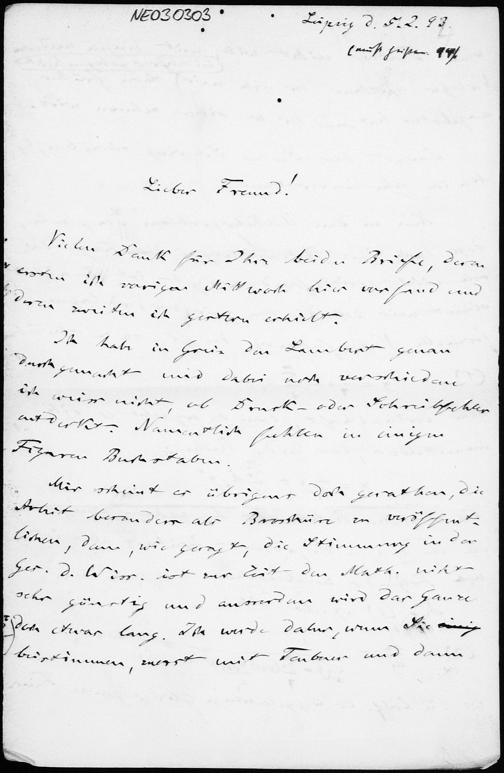 NE030303
Leipzig d. 5. 2. 93.
(muß heißen 99)
Lieber Freund!
Vielen Dank für Ihre beiden Briefe, deren
ersten ich vorigen Mittwoch hier vorfand und
deren zweiten ich gestern erhielt.
Ich habe in Greiz den Lambert genau
durchgemacht und dabei noch verschiedene
ich weiss nicht, ob Druck- oder Schreibfehler
entdeckt. Namentlich fehlen in einigen
Figuren Buchstaben.
Mir scheint es übrigens doch gerathen, die
Arbeit besonders als Broschüre zu veröffent-
lichen, denn, wie gesagt, die Stimmung in der
Ges. d. Wiss. ist zur Zeit den Math. nicht
sehr günstig und ausserdem wird das Ganze
doch etwas lang. Ich werde daher, wenn Sie
beistimmen, zuerst mit Teubner und dann